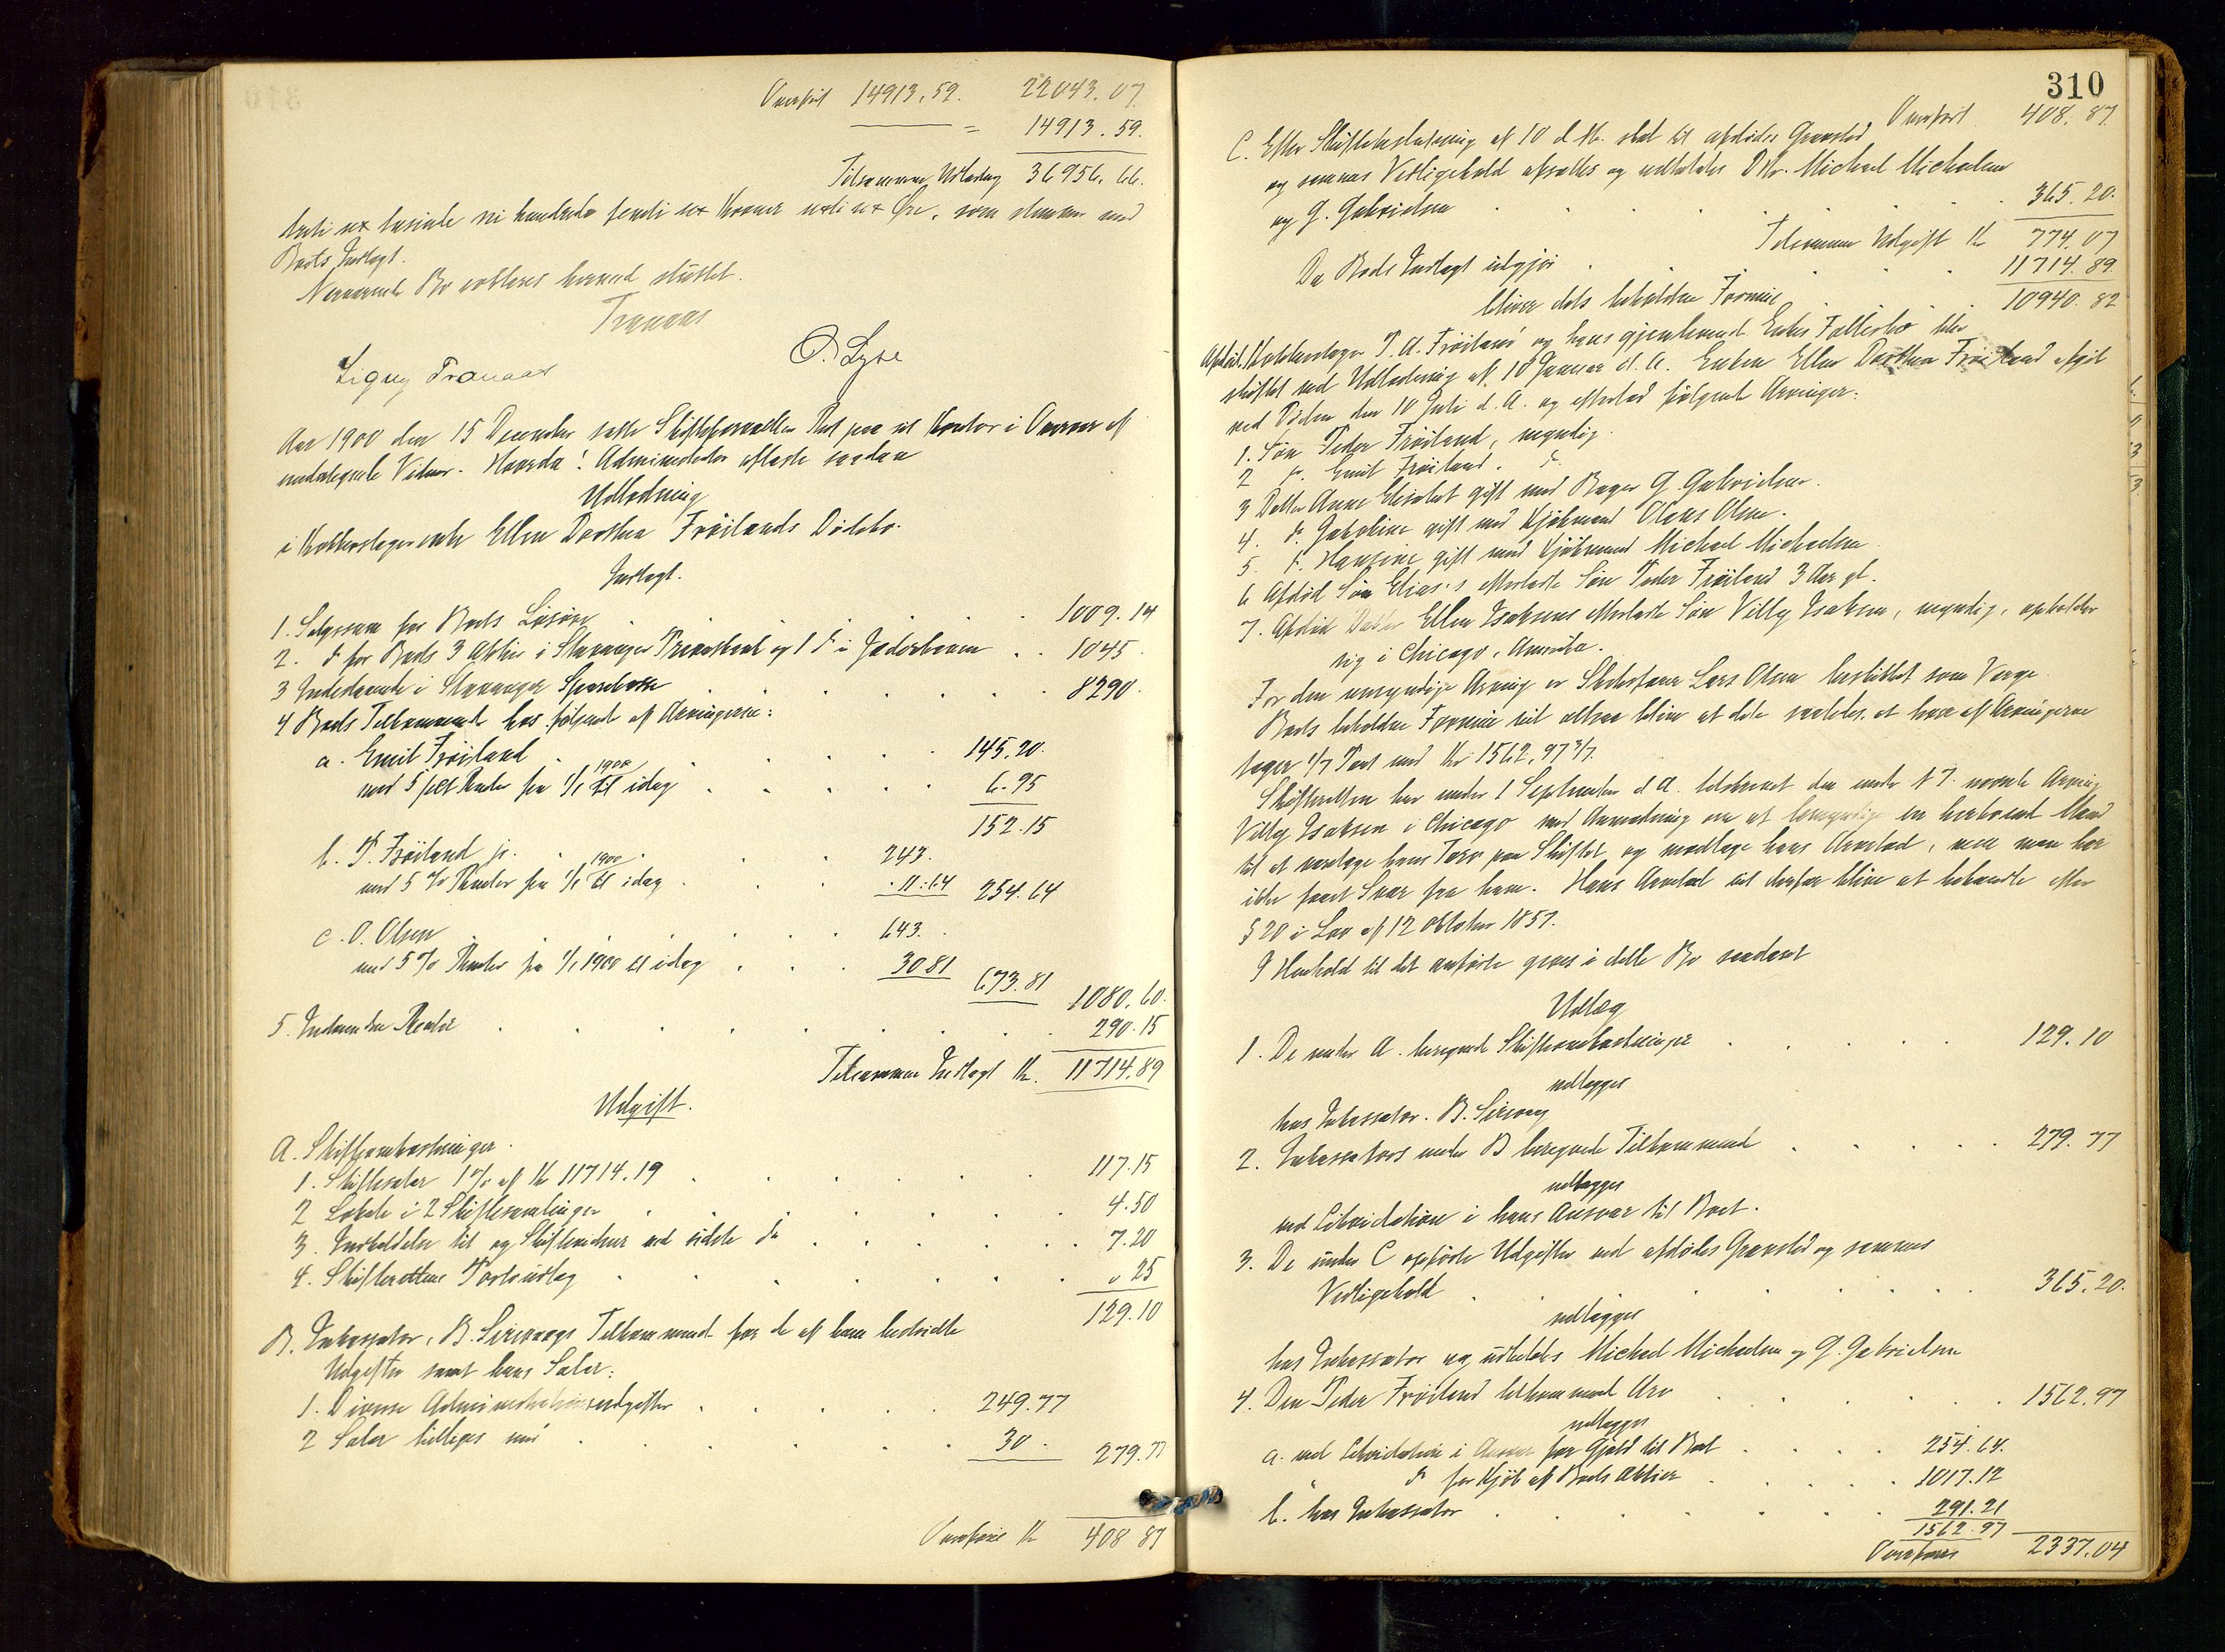 Overført 14913.59. 22043.07.
= 14913.59.
Tilsammen Udlodning 36956.66.
tretti sex tusinde ni hundrede femti sex Kroner sexti sex Øre, som stemmer med
Boets Indtægt.
Nærværende Bo erklæres hermed sluttet.
Tranaas
Signy Tranaas O. Lyse
Aar 1900 den 15 December satte Skifteforvalteren Ret paa sit Kontor i Overvær af
undertegnede Vidner. Hvorda: Administrator afleste saadan
Udlodning
i Kobberslagerenke Ellen Dorthea Frøilands Dødsbo.
Indtægt.
1. Salgssum for Boets Løsøre 1009.14
2. do for Boets 3 Aktier i Stavanger Privatbank og 1 do i Jæderbanen 1045.
3 Indestaaende i Stavanger Sparekasse 8290.
4 Boets Tilkommende hos følgende af Arvingerne:
a. Emil Frøiland 145.20.
med 5 pct Renter fra 1/1 1900 til idag 6.95
152.15
b. P. Frøiland jr. 243.
med 5 % Renter fra 1/1 1900 til idag 11.64 254.64
c. O. Olsen 643.
med 5 % Renter fra 1/1 1900 til idag 30.81 673.81 1080.60.
5. Indvundne Renter 290.15
Tilsammen Indtægt Kr. 11714.89
Udgift.
A. Skifteomkostninger.
1. Skiftesalær 1 % af Kr 11714.19 117.15
2 Lokale i 2 Skiftesamlinger 4.50
3. Indkaldelse til og Skiftevidner ved sidste do 7.20
4. Skifterettens Portoudlæg " 25
129.10
B. Inkassator, B. Sirevaags Tilkommende for de af ham bestridte
Udgifter samt hans Salær:
1. Diverse Administrationsudgifter 249.77
2 Salær tillægges ham 30. 279.77
Overføres Kr 408 87
310
Overført 408.87.
C. Efter Skiftebeslutning af 10 d. M. skal til afdødes Gravsted
og sammes Vedligehold afsættes og udbetales DHr. Michael Michaelsen
og G. Gabrielsen 365.20.
Tilsammen Udgift Kr 774.07
Da Boets Indtægt udgjør 11714.89.
bliver dets beholdne Formue 10940.82
Afdøde Kobberslager P. A. Frøiland og hans gjenlevende Enkes Fællesbo blev
skiftet ved Udlodning af 10 Januar d. A. Enken Ellen Dorthea Frøiland afgik
ved Døden den 10 Juli d. A. og efterlod følgende Arvinger:
1. Søn Peder Frøiland, myndig.
2 do. Emil Frøiland. do.
3 Datter Anne Elisabet gift med Bager G. Gabrielsen.
4. do. Jakobine gift med Kjøbmand Olaus Olsen.
5. do. Hansine gift med Kjøbmand Michael Michaelsen.
6 Afdød Søn Elias's efterladte Søn Peder Frøiland 3 Aar gl.
7. Afdød Datter Ellen Isaksens efterladte Søn Villy Isaksen, myndig, opholder
sig i Chicago, Amerika.
For den umyndige Arving er Skibsfører Lars Olsen beskikket som Værge.
Boets beholdne Formue vil altsaa blive at dele saaledes, at hver af Arvingerne
tager 1/7 Part med Kr 1562.97 3/7.
Skifteretten har under 1 September d A. tilskrevet den under № 7. nævnte Arving
Villy Isaksen i Chicago med Anmodning om at bemyndige en herboende Mand
til at varetage hans Tarv paa Skiftet og modtage hans Arvelod, men man har
ikke faaet Svar fra ham. Hans Arvelod vil derfor blive at behandle efter
§ 20 i Lov af 12 Oktober 1857.
I Henhold til det anførte gjøres i dette Bo saadant
Udlæg
1. De under A. beregnede Skifteomkostninger 129.10
udlægges
hos Inkassator. B. Sirevaag
2. Inkassators under B beregnede Tilkommende 279.77
udlægges
ved Likvidation i hans Ansvar til Boet.
3. De under C opførte Udgifter ved afdødes Gravsted og sammes
Vedligehold 365.20.
udlægges
hos Inkassator og udbetales Michael Michaelsen og G. Gabrielsen
4. Den Peder Frøiland tilkommende Arv 1562.97
udlægges
a. ved Likvidation i Ansvar for Gjæld til Boet 254.64.
do for Kjøb af Boets Aktier 1017.12
b. hos Inkassator 291.21
1562.97
Overføres 2337.04